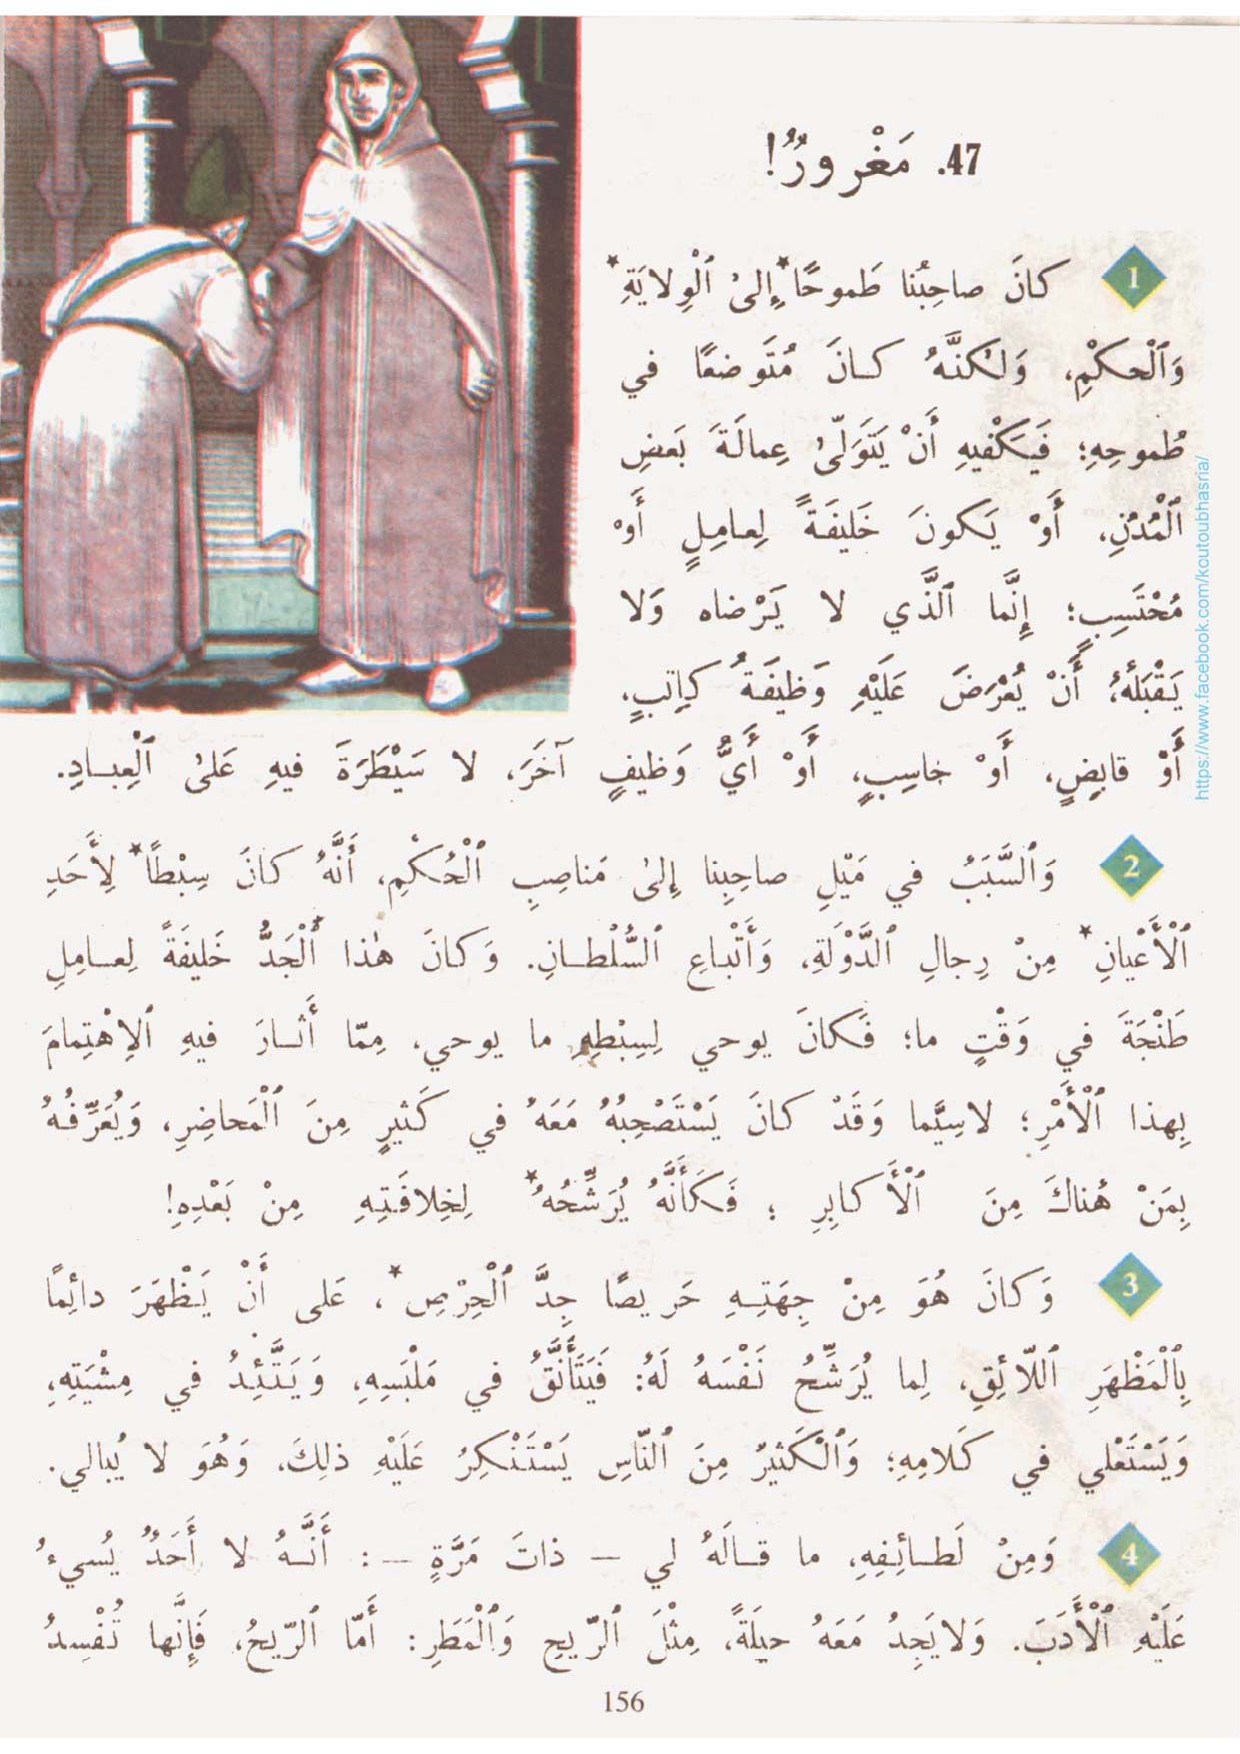 47. مَغْرورٌ!
1 كانَ صاحِبُنا طَموحًا* إِلىٰ ٱلْوِلايَةِ*
وَٱلْحكمْمِ، وَلٰكنَّهُ كـانَ مُتَوضعًا في
طُموحِهِ؛ فَيَكْفيهِ أَنْ يَتَوَلّىٰ عِمالَةَ بَعضِ
ٱلْمُدُنِ، أَوْ يَكونَ خَليفَةً لِعامِلٍ أَوْ
مُحْتَسِبٍ؛ إِنَّما ٱلَّذي لا يَرْضاه وَلا
يَقْبَلُهُ؛ أَنْ يُعْرَضَ عَلَيْهِ وَظيفَةُ كاتِبٍ،
أَوْ قابِضٍ، أَوْ حاسِبٍ، أَوْ أَيُّ وَظيفٍ آخَرَ، لا سَيْطَرَةَ فيهِ عَلىٰ ٱلْعِبـادِ.
2 وَٱلسَّبَبُ في مَيْلِ صاحِبِنا إِلىٰ مَناصِبِ ٱلْحُكْمِ، أَنَّهُ كانَ سِبْطًا* لِأَحَدِ
ٱلْأَعْيانِ* مِنْ رِجالِ ٱلدَّوْلَةِ، وَأَتْباعِ ٱلسُّلْطـانِ. وَكانَ هٰذا ٱلْجَدُّ خَليفَةً لِعـامِلِ
طَنْجَةَ في وَقْتٍ ما؛ فَكانَ يوحي لِسِبْطِهِ ما يوحي، مِمّا أَثـارَ فيهِ ٱلاِهْتِمامَ
بِهذا ٱلْأَمْرِ؛ لاسِيَّما وَقَدْ كانَ يَسْتَصْحِبُهُ مَعَهُ في كَثيرٍ مِنَ ٱلْمَحاضِرِ، وَيُعَرِّفُـهُ
بِمَنْ هُناكَ مِنَ ٱلْأَكابِرِ ؛ فَكَأَنَّهُ يُرَشِّحُهُ* لِخِلافَتِهِ مِنْ بَعْدِهِ!
3 وَكانَ هُوَ مِنْ جِهَتِـهِ حَريصًا جِدَّ ٱلْحِرْصِ*، عَلى أَنْ يَظْهَرَ دائِمًا
بِٱلْمَظْهَرِ ٱللّائِقِ، لِما يُرَشِّحُ نَفْسَهُ لَهُ: فَيَتَأَنَّقُ في مَلْبَسِهِ، وَيَتَّئِدُ في مِشْيَتِهِ،
وَيَسْتَعْلي في كَلامِهِ؛ وَٱلْكَثيرُ مِنَ ٱلنّاسِ يَسْتَنْكِرُ عَلَيْهِ ذلِكَ، وَهُوَ لا يُبالي.
4 وَمِنْ لَطـائِفِهِ، ما قـالَهُ لي – ذاتَ مَرَّةٍ –: أَنَّـهُ لا أَحَدٌ يُسيءُ
عَلَيْهِ ٱلْأَدَبَ. وَلايَجِدُ مَعَهُ حيلَةً، مِثْلَ ٱلرّيحِ وَٱلْمَطَرِ: أَمّا ٱلرّيحُ، فَإِنَّها تُفْسِدُ
156
https://www.facebook.com/koutoubhasria/